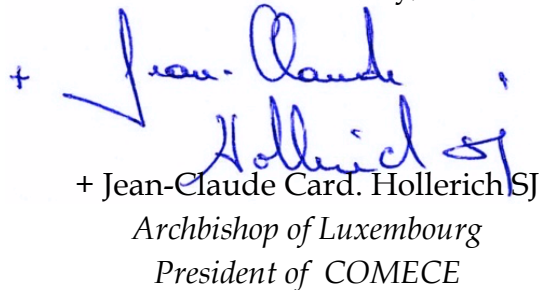 + Jean-Claude
Hollerich sj
+ Jean-Claude Card. Hollerich SJ
Archbishop of Luxembourg
President of COMECE